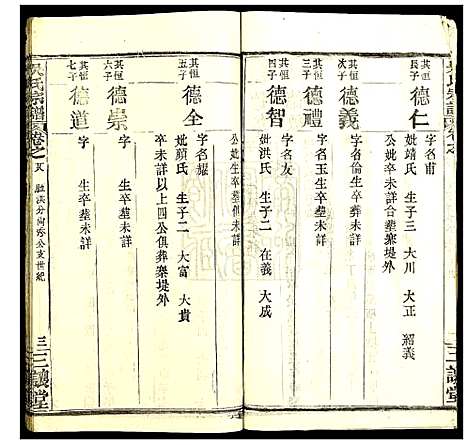 其恒長子 德仁
字名甫
妣靖氏 生子三 大川 大正 紹義
公妣卒未詳合塟寨堤外
其恒次子 德義
字名倫生卒塟未詳
其恒三子 德禮
字名玉生卒塟未詳
其恒四子 德智
字名友
妣洪氏 生子二 在義 大成
公妣生卒塟俱未詳
其恒五子 德全
字名耀
妣顏氏 生子二 大富 大貴
卒未詳以上四公俱葬寨堤外
其恒六子 德崇
字 生卒塟未詳
其恒七子 德道
字 生卒塟未詳
吳氏宗譜 卷之
公支世紀
三 三讓堂